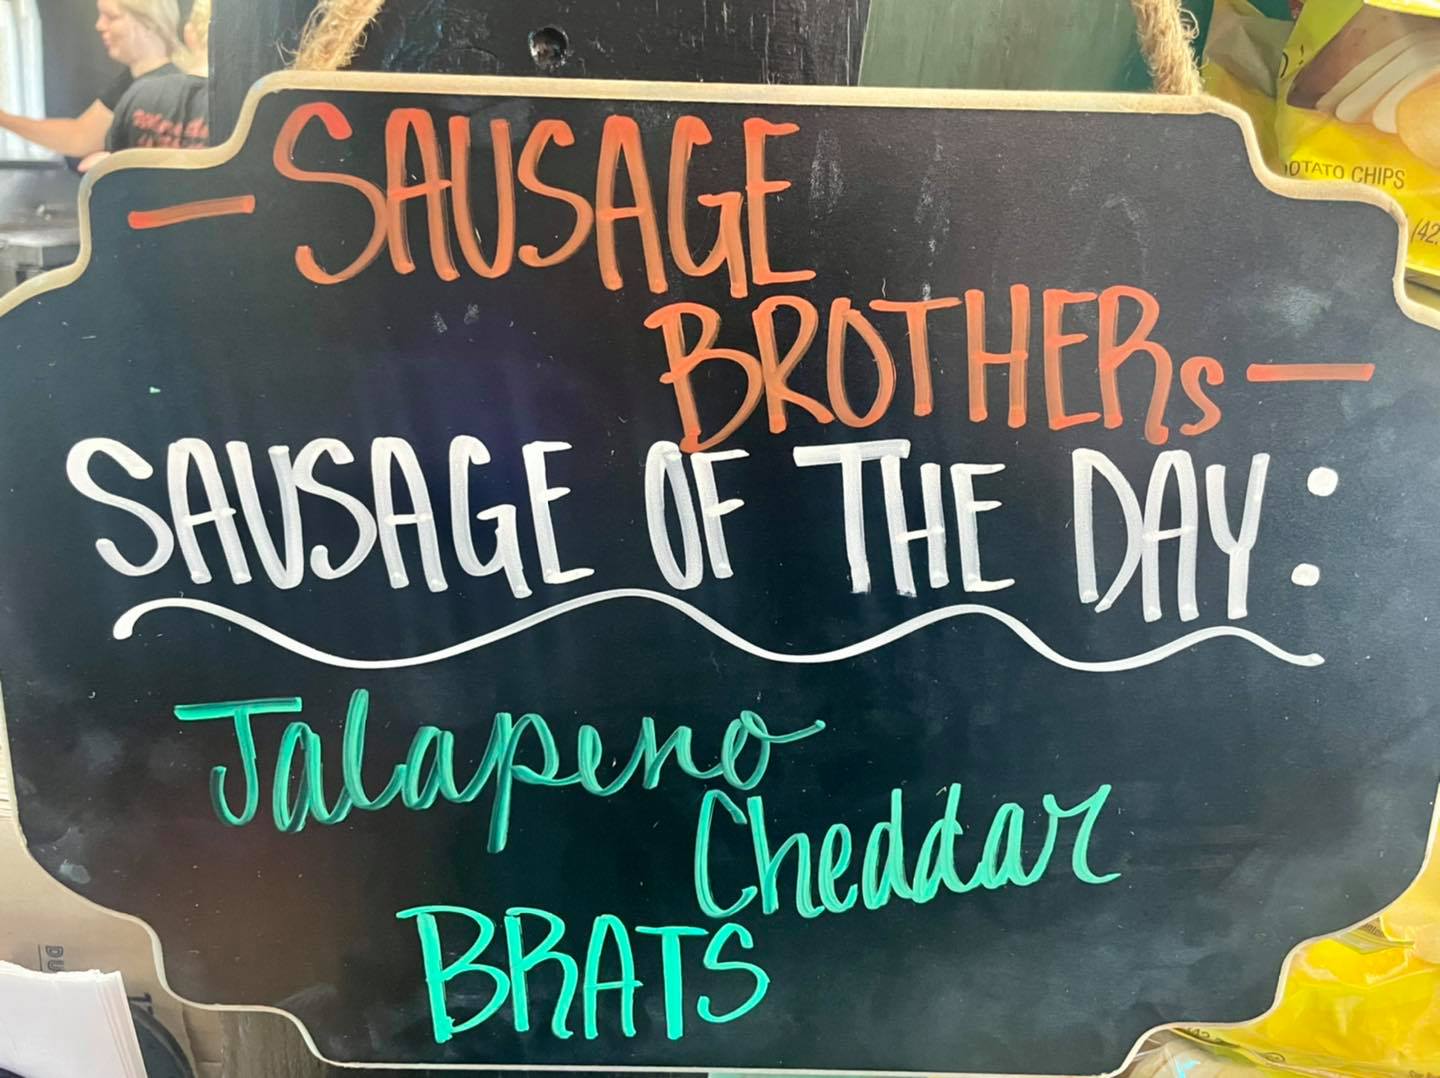 - SAUSAGE
BROTHERS -
SAUSAGE OF THE DAY:
Jalapeno
Cheddar
BRATS
POTATO CHIPS
(42.